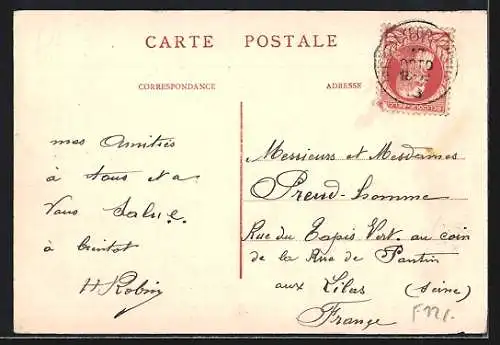 CARTE POSTALE
CORRESPONDANCE
ADRESSE
mes Amitiés
à tous et a
Vous Salue.
à bientot
H Robin
Messieurs et Mesdames
Preud-homme
Rue du Tapis Vert. au coin
de la Rue de Pantin
aux Lilas (Seine)
France